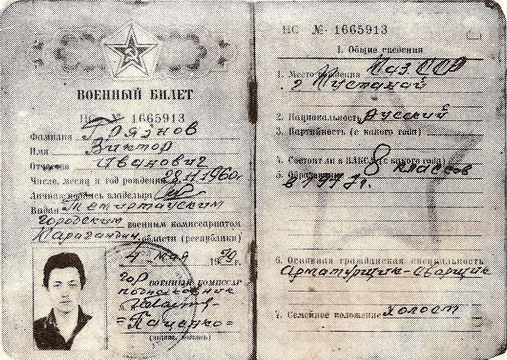 ВОЕННЫЙ БИЛЕТ
НС № 1665913
Фамилия Грязнов
Имя Виктор
Отчество Иванович
Число, месяц и год рождения 28.11.1960г.
Личная подпись владельца
Выдан Темиртауским
городским военным комиссариатом
Карагандин. области (республики)
4 мая 1979г.
ВОЕННЫЙ КОМИССАР
подполковник
(подпись)
НС № 1665913
1. Общие сведения
1. Место рождения Каз. ССР
г Кустанай
2. Национальность русский
3. Партийность (с какого года)
4. Состоит ли в ВЛКСМ (с какого года)
5. Образование 8 классов
в 1977г.
6. Основная гражданская специальность
Арматурщик-сварщик
7. Семейное положение холост